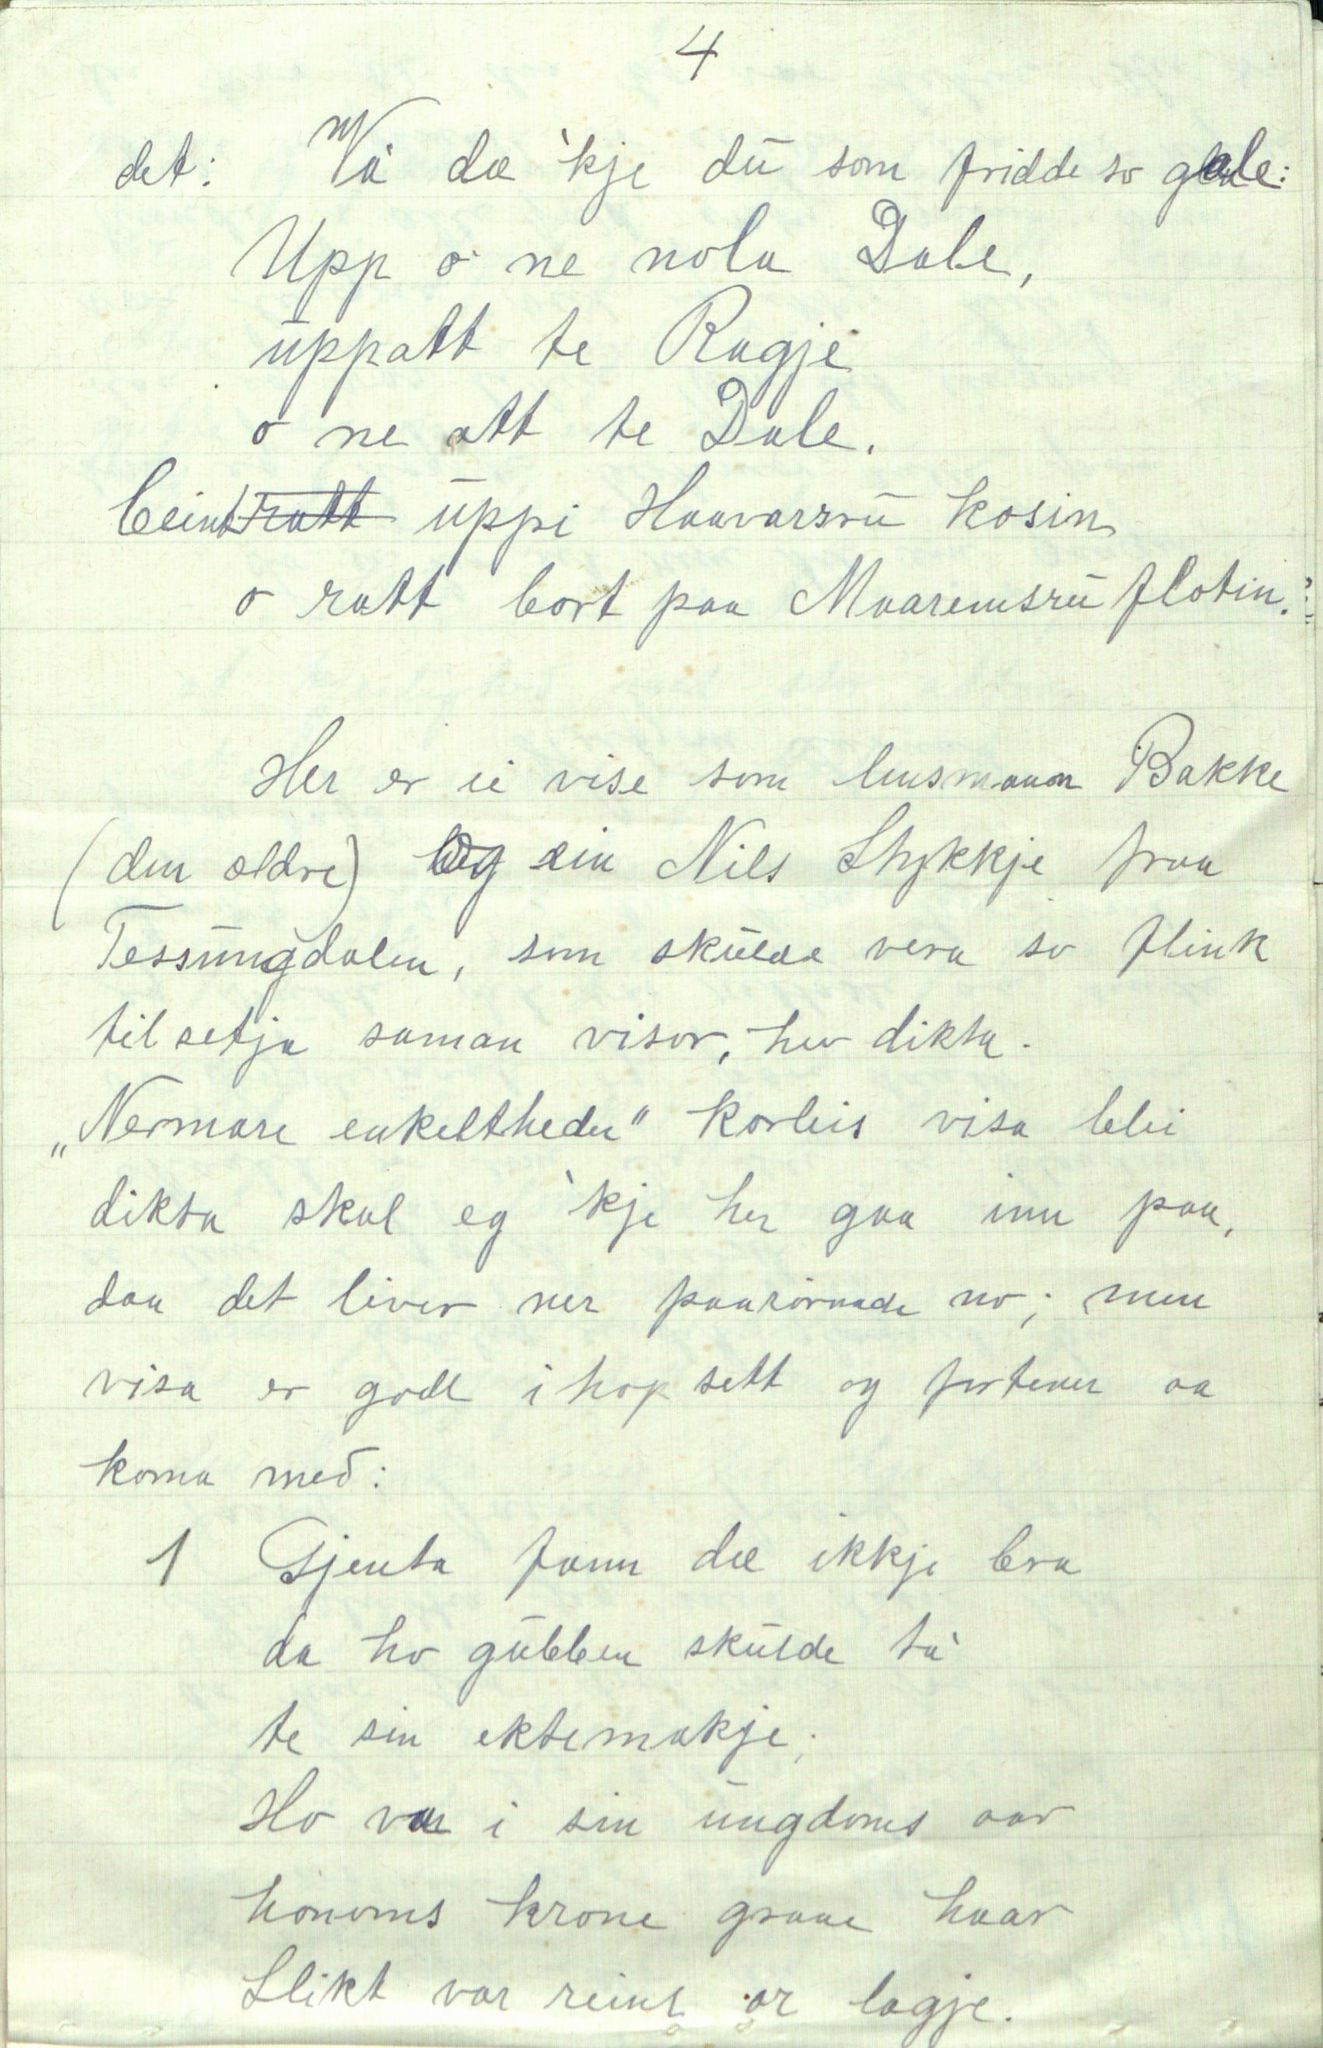 4
det: Va dæ 'kje du som fridde so gale:
Upp o ne nola Dale,
uppatt te Ragje
o ne att te Dale.
beint ratt uppi Haavarsrukosin
o ratt bort paa Maaremsruflotin.
Her er ei vise som lensmann Bakke
(den eldre) og ein Nils Stykkje fraa
Tessungdalen, som skulde vera so flink
til setja saman visor, hev dikta.
„Nermare enkeltheder" korleis visa blei
dikta skal eg 'kje her gaa inn paa,
daa det liver ner paarörande no; men
visa er godt ihopsett og fortener aa
koma med:
1 Gjenta fann dæ ikkje bra
da ho gubben skulde ta
te sin ektemakje;
Ho var i sin ungdoms aar
honoms krone graae haar
Slikt var reint or lagje.